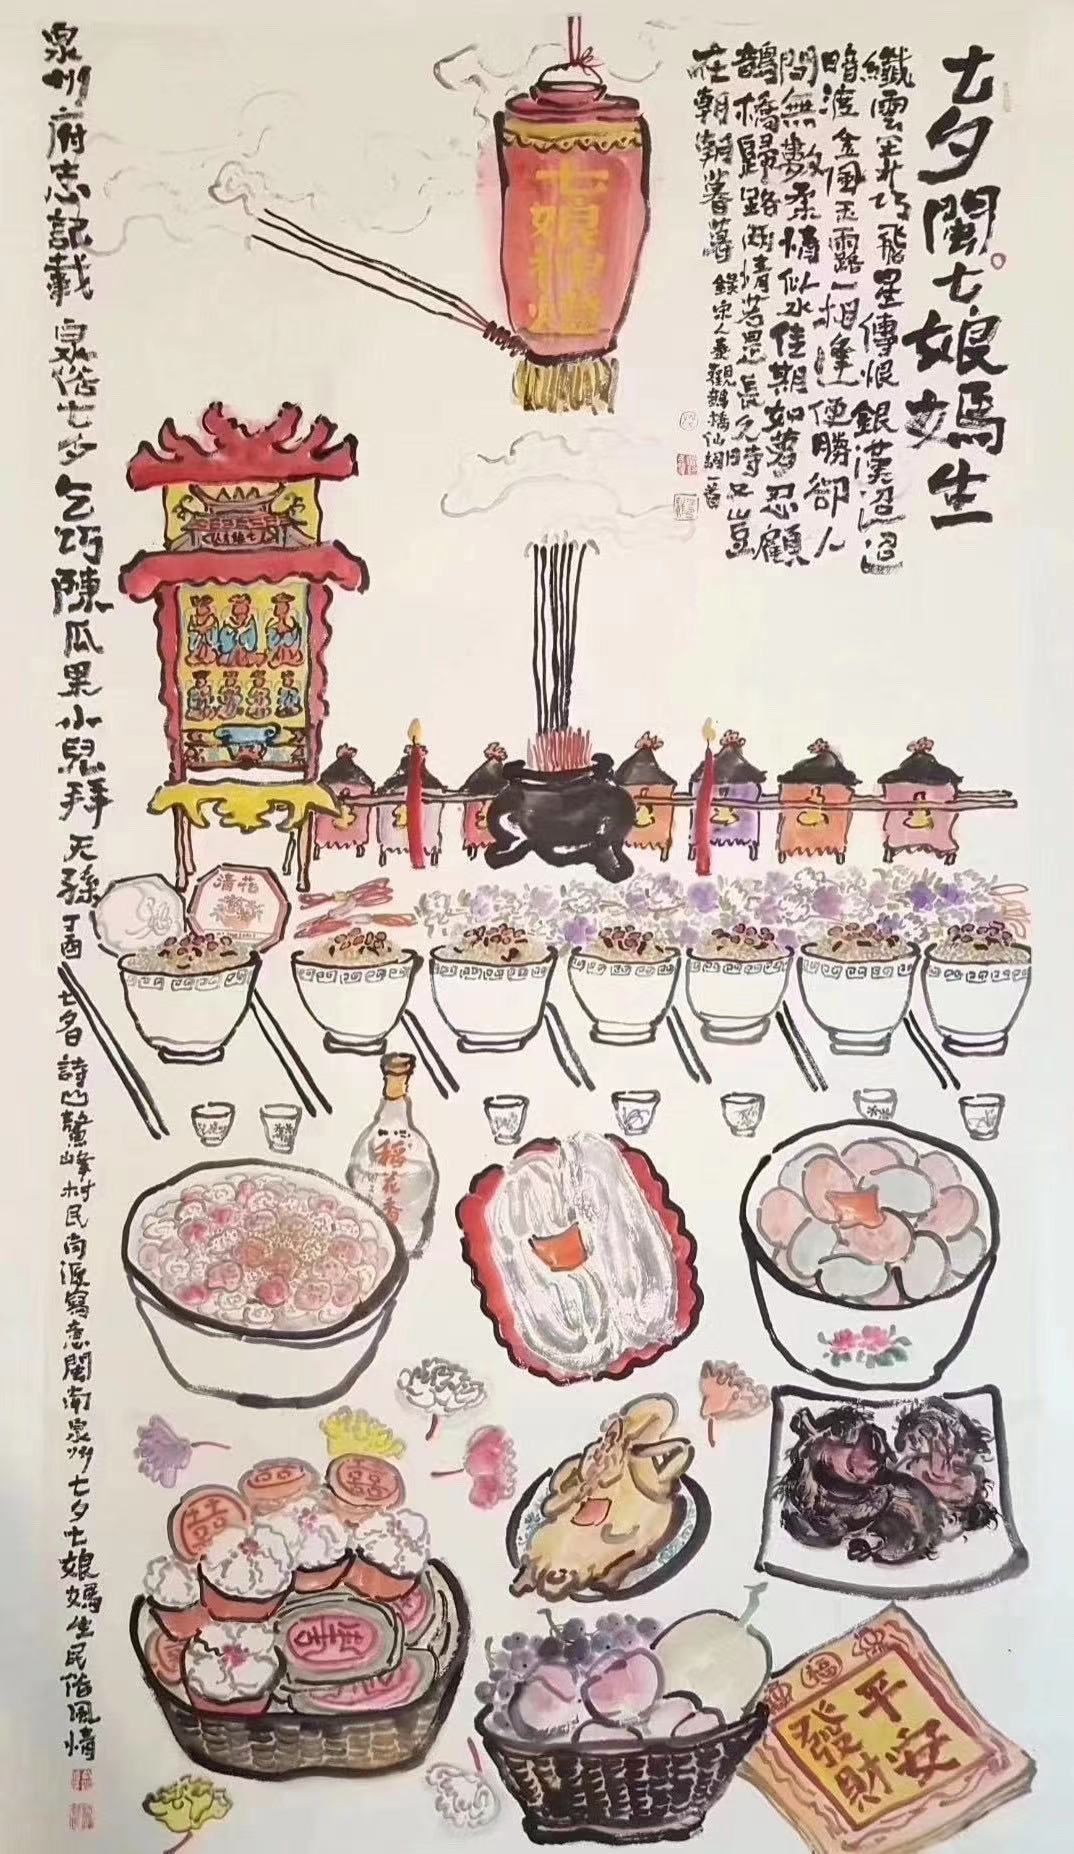 七夕閩七娘媽生
纖雲弄巧飛星傳恨銀漢迢迢
暗渡金風玉露一相逢便勝卻人
間無數柔情似水佳期如夢忍顧
鵲橋歸路兩情若是長久時又豈
在朝朝暮暮 錄宋人秦觀鵲橋仙詞一首
七娘神燈
泉州府志記載 泉俗七夕乞巧陳瓜果小兒拜天孫 丁酉 七 詩山鰲峰村民尚源寫意閩南泉州七夕七娘媽生民俗風情
花清
稻花香
囍
囍
囍
福
平安
發財